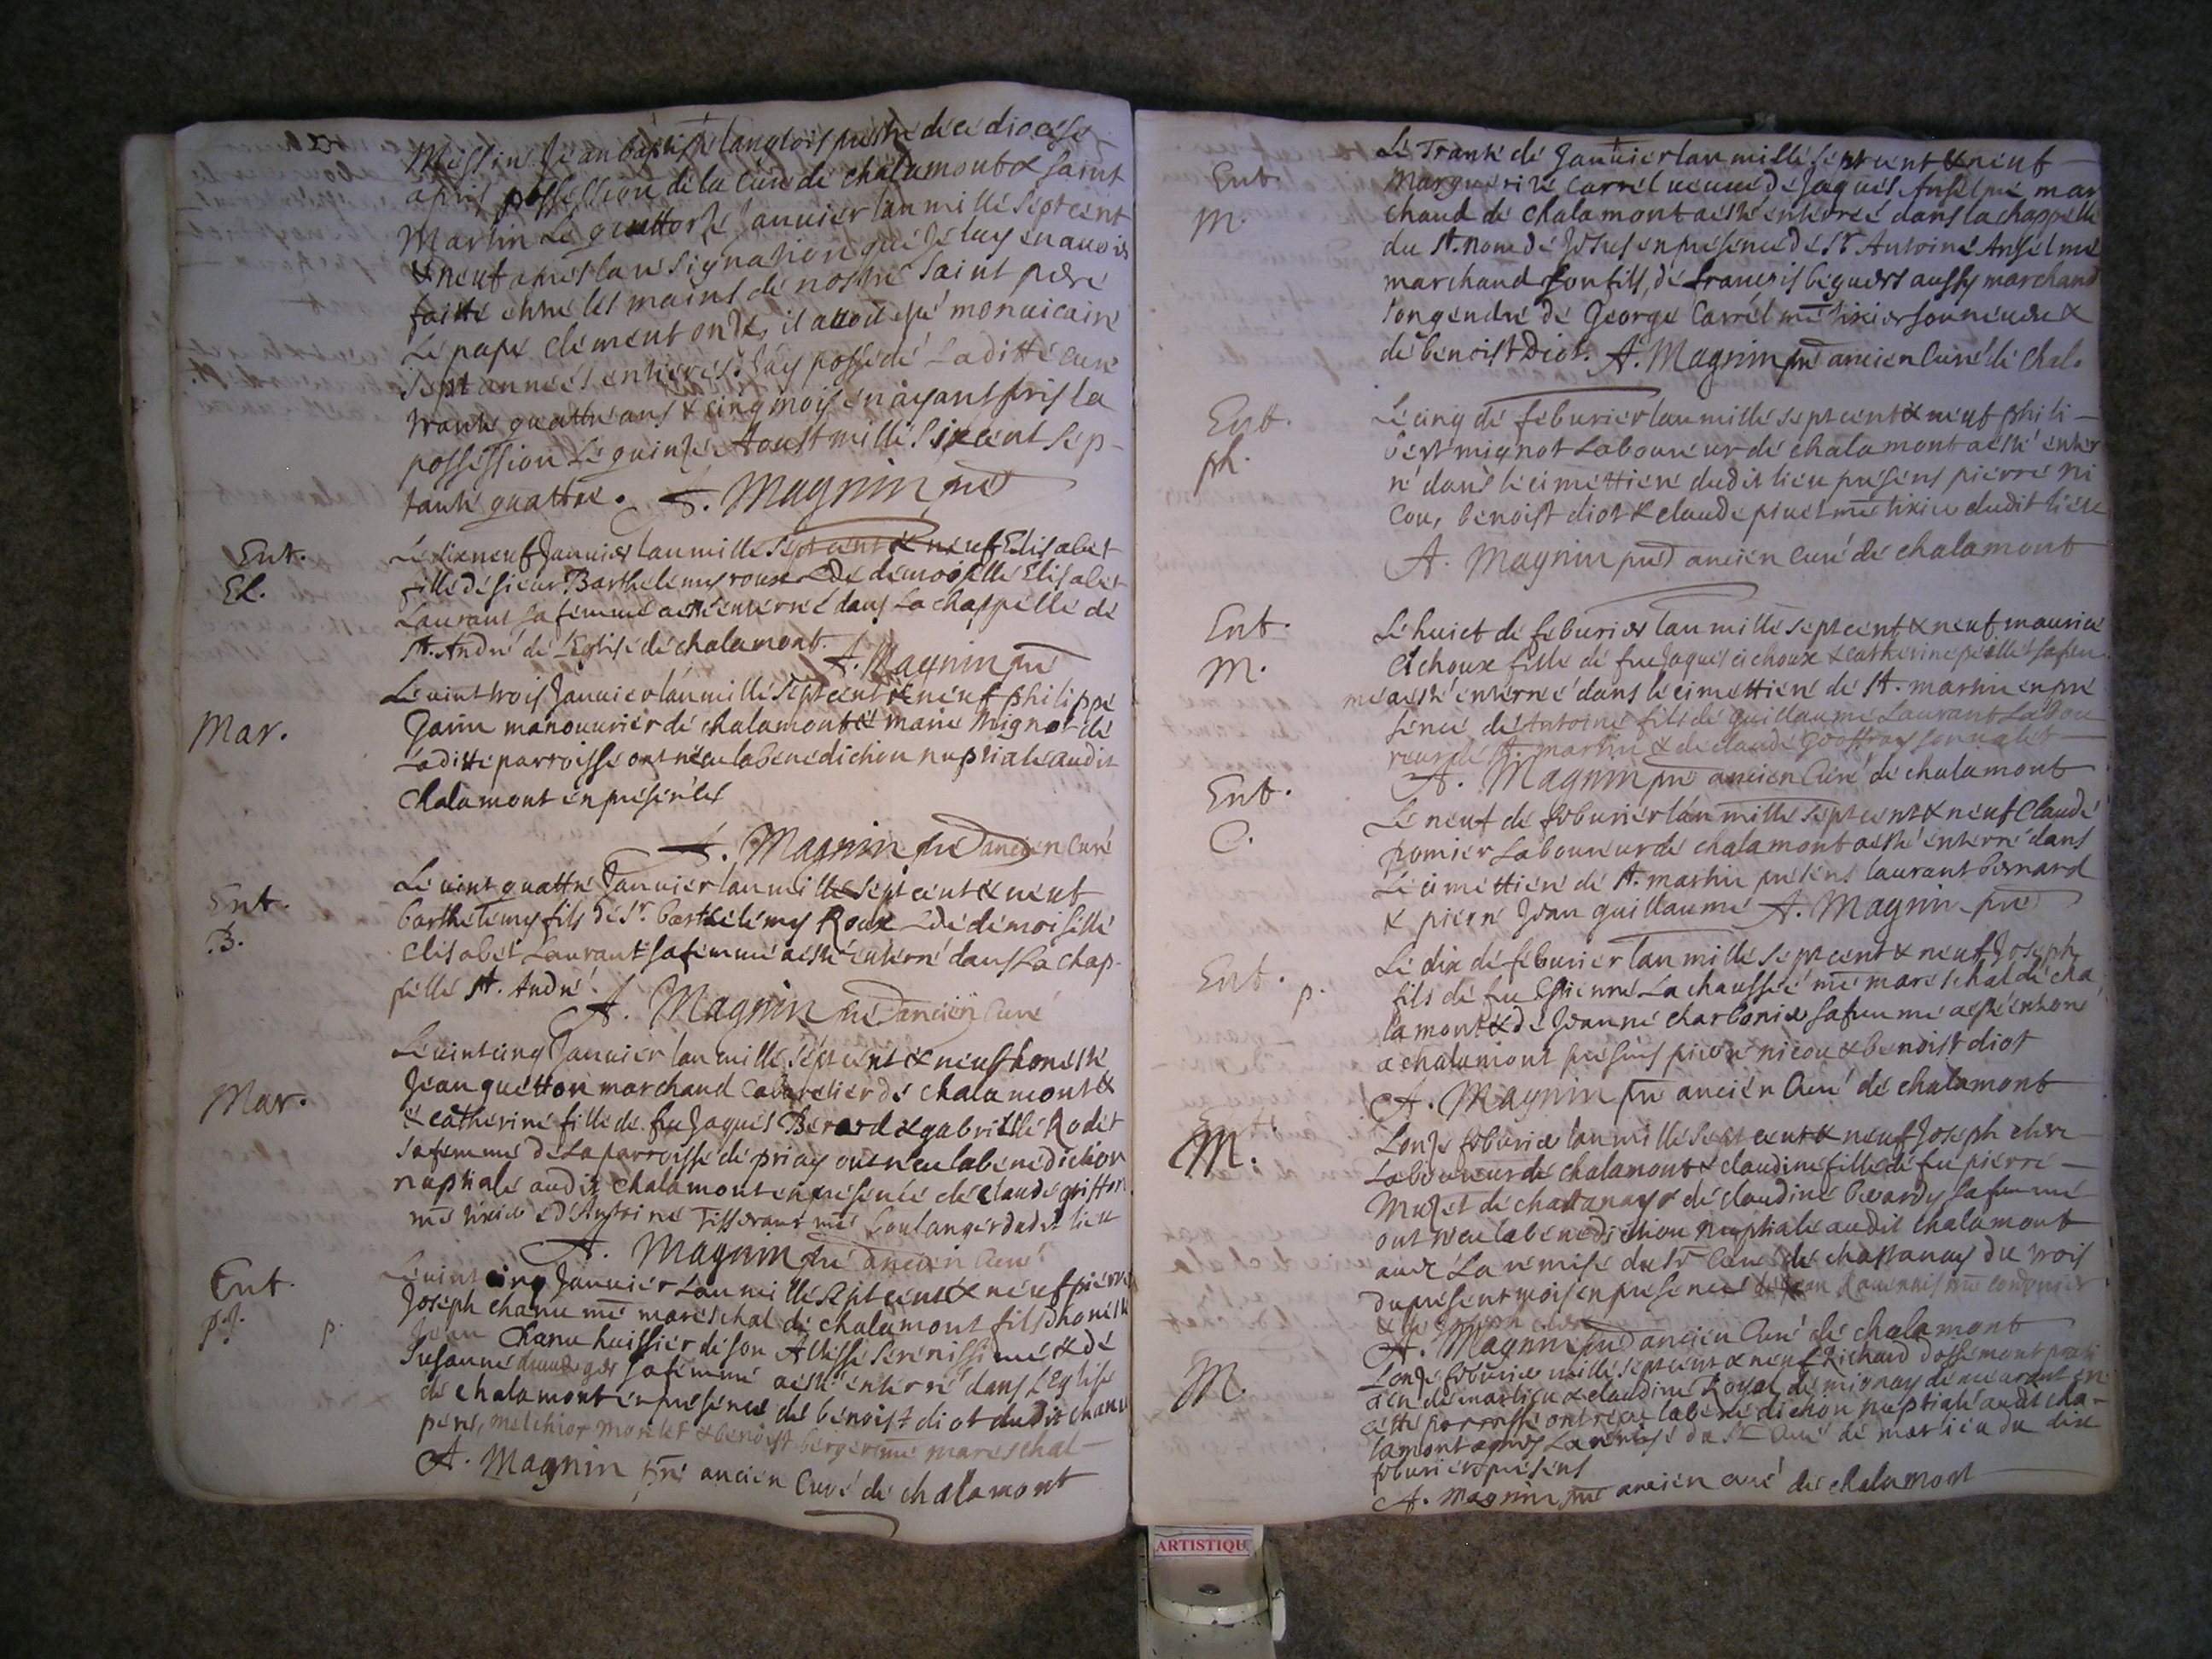 Messire Jean baptiste langlois prestre de ce diocese
a pris possession de la Cure de chalamont & saint
Martin Le quattorze Janvier lan mille sept cent
& neuf apres la resignation que Je luy en avois
faitte entre les mains de nostre saint pere
Le pape clement onze, il avoit esté mon vicaire
sept années entieres. J'ay possedé Laditte Cure
trante quattre ans & cinq mois en ayant pris la
possession Le quinze Aoust mille six cent sep-
tante quattre. A. Magnin pre
Ent. Le dixneuf Janvier lan mille sept cent & neuf Elisabet
El. fille de sieur Barthelemy roux & de demoiselle Elisabet
Laurant sa femme a esté enterreé dans La chappelle de
St. André de l'Eglise de chalamont.
A. Magnin pre
Le vint trois Janvier lan mille sept cent & neuf philippe
Mar. Janin manouvrier de chalamont & marie Mignot de
Laditte parroisse ont receu la benediction nuptiale audit
Chalamont en presence
A. Magnin pre ancien Curé
Le vint quattre Janvier lan mille sept cent & neuf
Ent. barthelemy fils de Sr. barthelemy Roux & de demoiselle
B. Elisabet Laurant sa femme a esté enterré dans La chap-
pelle St. André.
A. Magnin pre ancien Curé
Le vint cinq Janvier lan mille sept cent & neuf honeste
Mar. Jean quetton marchand cabaretier de chalamont &
& catherine fille de fu Jaques Berard & gabrielle Rodet
sa femme de La parroisse de priay ont receu la benediction
nuptiale audit chalamont en presence de claude griffon
me tixier & d'Antoine Tisserant me boulanger dudit lieu
A. Magnin pre ancien Curé
Ent. Le vint cinq Janvier Lan mille sept cent & neuf pierre
p.J. p. Joseph chanu me mareschal de chalamont fils dhoneste
Jean Chanu huissier de son Altesse serenissime & de
Susanne sa femme a esté enterré dans l'Eglise
de chalamont en presence de benoist diot dudit chanu
pere, melchior morelet & benoist berger me mareschal
A. Magnin pre ancien Curé de chalamont
Le Trante de Janvier lan mille sept cent & neuf
Ent. Marguerite Carrel veuve de Jaques Anselme mar
M. chand de chalamont a esté enterreé dans la chappelle
du St. nom de Jesus en presence de Sr Antoine Anselme
marchand son fils, de francois beguers aussy marchand
son gendre de George Carrel me tixier son neveu &
de benoist Diot. A. Magnin pre ancien Curé de Chal.
Ent. Le cinq de feburier lan mille sept cent & neuf phili-
ph. bert mignot Laboureur de chalamont a esté enter
ré dans le cimettiere dudit lieu presens pierre ni
cou, benoist diot & claude pivet me tixier dudit lieu
A. Magnin pre ancien Curé de chalamont
Ent. Le huict de feburier lan mille sept cent & neuf maurice
M. Cichoux fille de fu Jaques cichoux & catherine peillet sa fem
me a esté enterreé dans le cimettiere de St. martin en pre
sence de Antoine fils de guillaume Laurant Labou
reur de St. martin & de claude son valet
A. Magnin pre ancien Curé de chalamont
Ent. Le neuf de feburier lan mille sept cent & neuf Claude
C. pomier Laboureur de chalamont a esté enterré dans
Le cimettiere de St. martin presens laurant bernard
& pierre Jean guillaume A. Magnin pre
Le dix de feburier lan mille sept cent & neuf Joseph
Ent. p. fils de fu Estienne La chausseé me mareschal de cha
lamont & de Jeanne charbonier sa femme a esté enterré
a chalamont presens pierre nicou & benoist diot
A. Magnin pre ancien Curé de chalamont
M. Lonze feburier lan mille sept cent & neuf Joseph chere
Laboureur de chalamont & claudine fille de fu pierre
Muzet de chattanay & de claudine bevardy sa femme
ont receu la benediction nuptiale audit chalamont
avec La remise du Sr Curé de chastanay du trois
du present mois en presence de Jean me cordonier
A. Magnin pre ancien Curé de chalamont
M. Lonze feburier mille sept cent & neuf Richard dossemont prati
cien de marlieu & claudine Royal de mionay demeurant en
cette parroisse ont receu la benediction nuptiale audit cha-
lamont apres La remise du Sr Curé de marlieu du dix
feburier presens
A. Magnin pre ancien curé de chalamont
ARTISTIQU